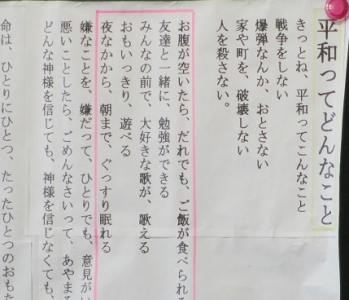 平和ってどんなこと
きっとね、平和ってこんなこと
戦争をしない
爆弾なんか、おとさない
家や町を、破壊しない
人を殺さない。
お腹が空いたら、だれでも、ご飯が食べられる
友達と一緒に、勉強ができる
みんなの前で、大好きな歌が、歌える
おもいっきり、遊べる
夜なかから、朝まで、ぐっすり眠れる
嫌なことを、嫌だって、ひとりでも、意見がい
悪いことしたら、ごめんなさいって、あやまる
どんな神様を信じても、神様を信じなくても、
命は、ひとりにひとつ、たったひとつのおもた